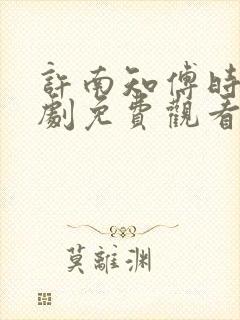 許南知傅時
劇免費觀看
莫離渊